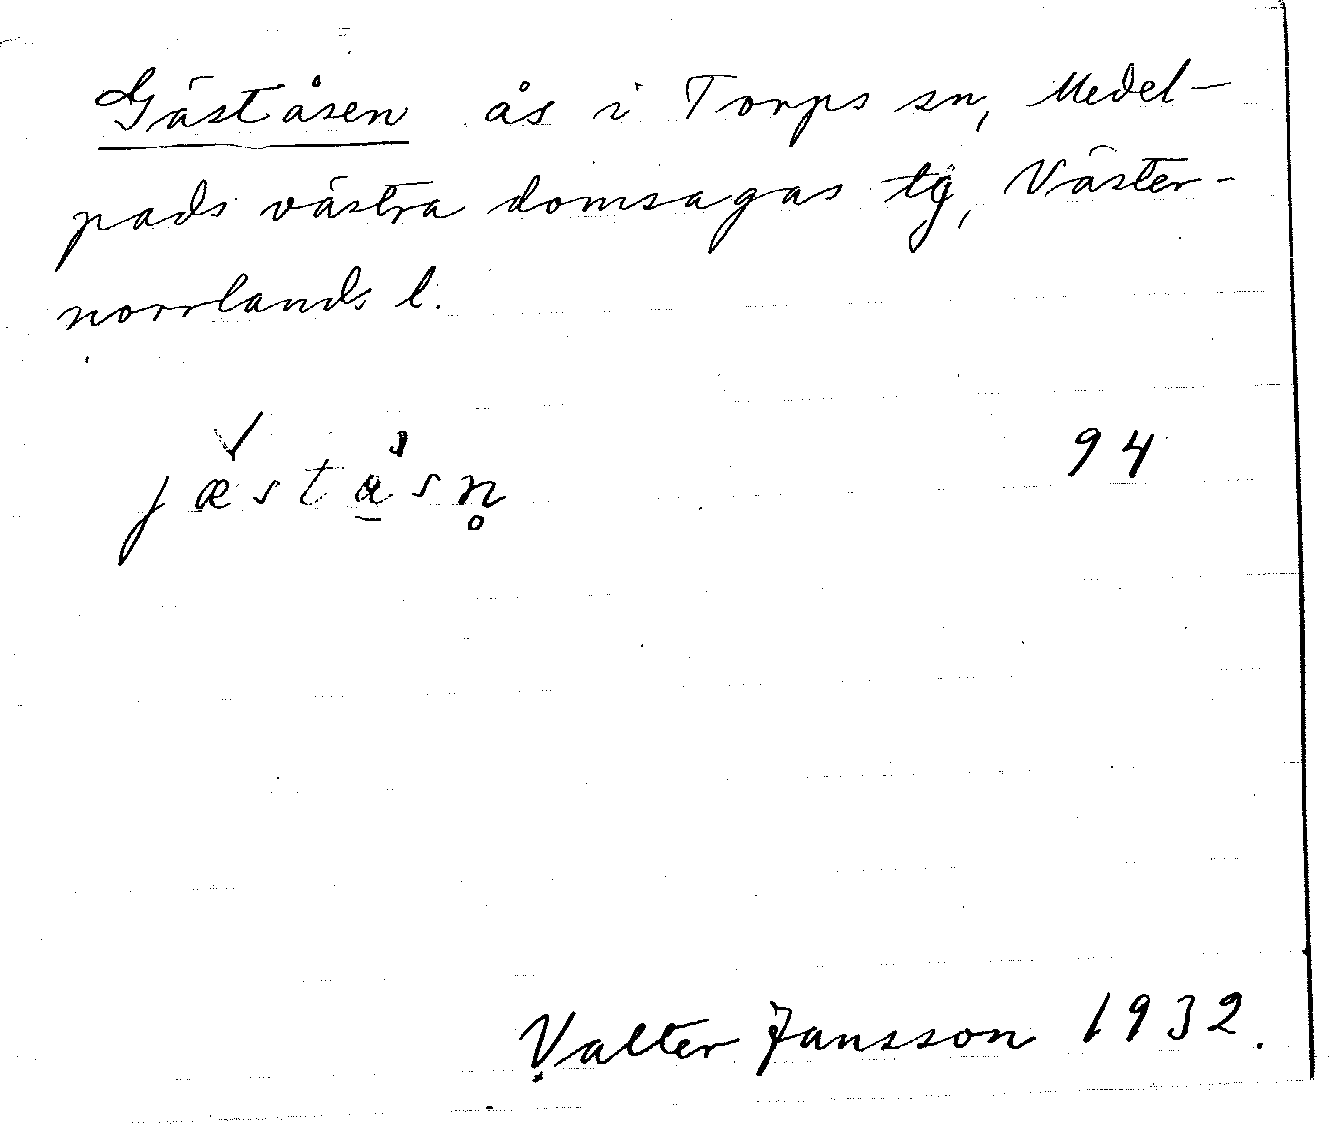 Gäståsen ås i Torps sn, Medel-
pads västra domsagas tg, Väster-
norrlands l.
jæståsn̥ 94
Valter Jansson 1932.